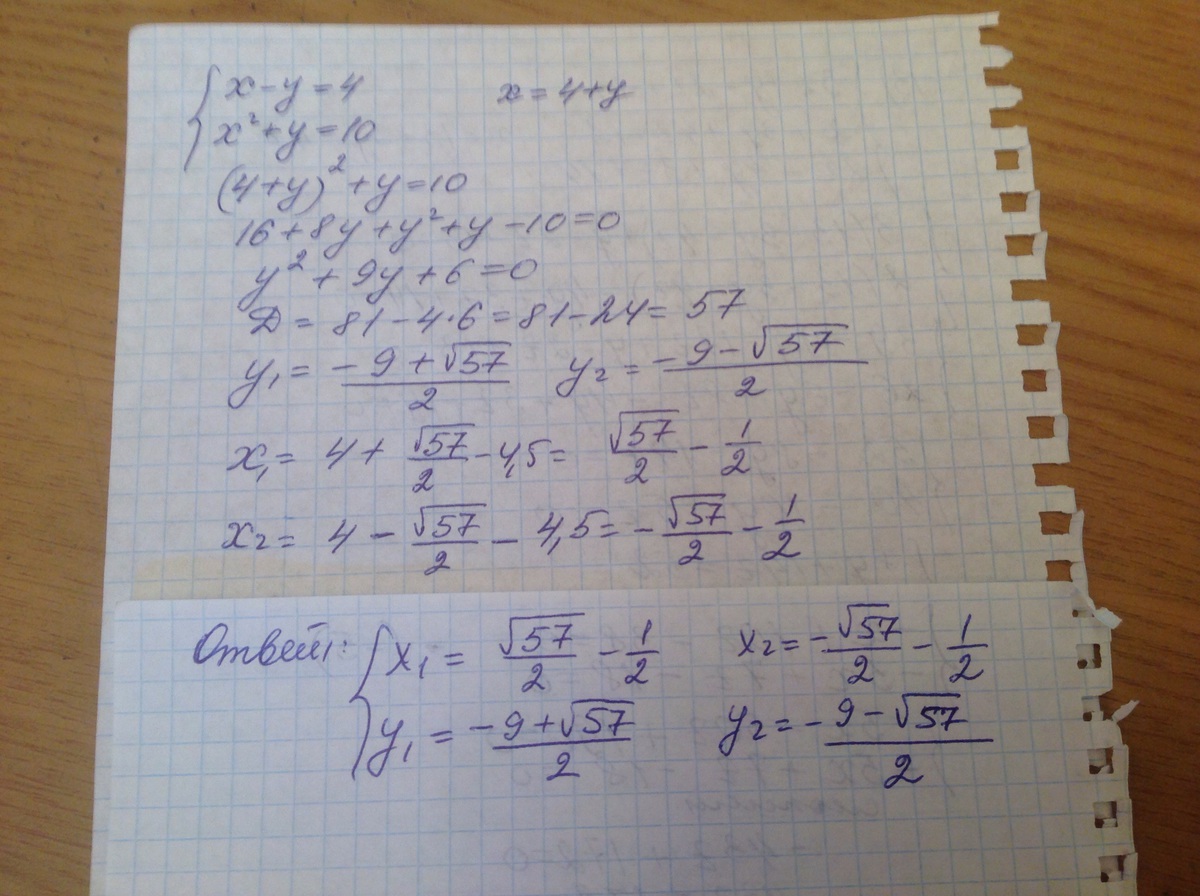 { x-y=4      x=4+y
x²+y=10
(4+y)²+y=10
16+8y+y²+y-10=0
y²+9y+6=0
D=81-4·6=81-24=57
y₁=(-9+√57)/2   y₂=(-9-√57)/2
x₁=4+√57/2-4,5=√57/2-1/2
x₂=4-√57/2-4,5=-√57/2-1/2
Ответ: { x₁=√57/2-1/2   x₂=-√57/2-1/2
y₁=(-9+√57)/2   y₂=(-9-√57)/2